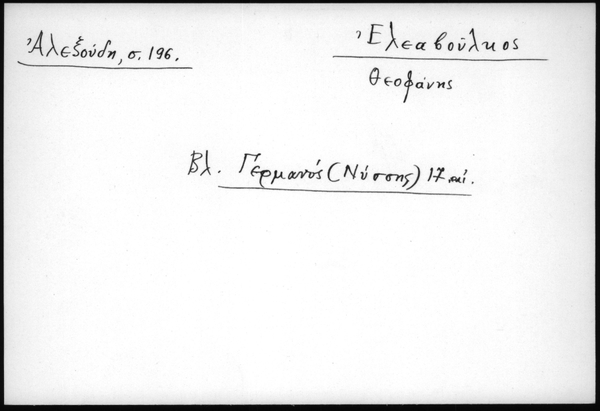 Ἀλεξούδη, σ. 196.
Ἐλεαβοῦλκος
Θεοφάνης
Βλ. Γερμανός (Νύσσης) 17